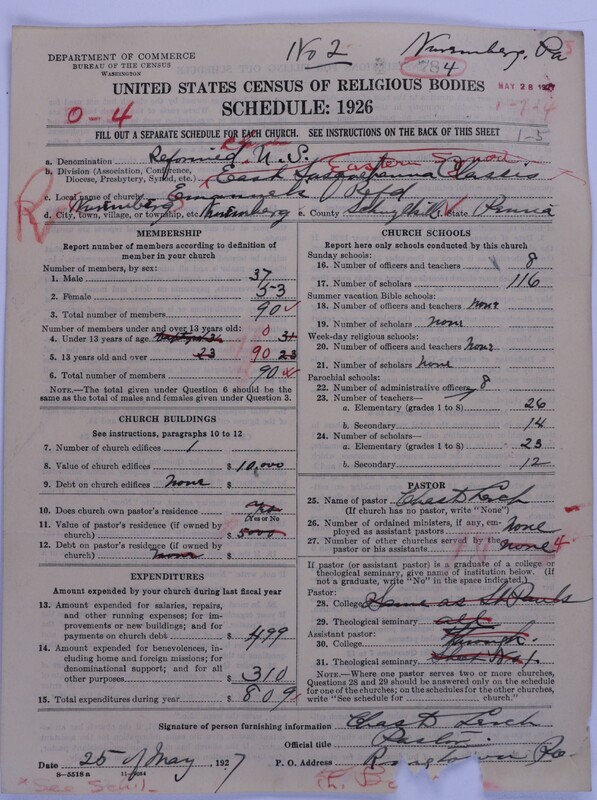 No 2
Nuremberg, Pa
DEPARTMENT OF COMMERCE
BUREAU OF THE CENSUS
WASHINGTON
784
MAY 28 1927
UNITED STATES CENSUS OF RELIGIOUS BODIES
SCHEDULE: 1926
0-4
FILL OUT A SEPARATE SCHEDULE FOR EACH CHURCH. SEE INSTRUCTIONS ON THE BACK OF THIS SHEET
1-5
a. Denomination Reformed U.S.
Eastern Synod
b. Division (Association, Conference, Diocese, Presbytery, Synod, etc.) East Susquehanna Classis
c. Local name of church Emanuels Refd
d. City, town, village, or township, etc. Nuremberg e. County Schuylkill State Penna
MEMBERSHIP
Report number of members according to definition of member in your church
Number of members, by sex:
1. Male 37
2. Female 53
3. Total number of members 90
Number of members under and over 13 years old: 0
4. Under 13 years of age 31
5. 13 years old and over 23 90 23
6. Total number of members 90
NOTE.—The total given under Question 6 should be the same as the total of males and females given under Question 3.
CHURCH BUILDINGS
See instructions, paragraphs 10 to 12
7. Number of church edifices 1
8. Value of church edifices $ 10,000
9. Debt on church edifices None $
10. Does church own pastor's residence
(Yes or No)
11. Value of pastor's residence (if owned by church) $ 5000
12. Debt on pastor's residence (if owned by church) none $
EXPENDITURES
Amount expended by your church during last fiscal year
13. Amount expended for salaries, repairs, and other running expenses; for improvements or new buildings; and for payments on church debt $ 499
14. Amount expended for benevolences, including home and foreign missions; for denominational support; and for all other purposes $ 310
15. Total expenditures during year $ 809
CHURCH SCHOOLS
Report here only schools conducted by this church
Sunday schools:
16. Number of officers and teachers 8
17. Number of scholars 116
Summer vacation Bible schools:
18. Number of officers and teachers none
19. Number of scholars none
Week-day religious schools:
20. Number of officers and teachers none
21. Number of scholars none
Parochial schools:
22. Number of administrative officers 8
23. Number of teachers—
a. Elementary (grades 1 to 8) 26
b. Secondary 14
24. Number of scholars—
a. Elementary (grades 1 to 8) 23
b. Secondary 12
PASTOR
25. Name of pastor Chas D Lerch
(If church has no pastor, write "None")
26. Number of ordained ministers, if any, employed as assistant pastors None
27. Number of other churches served by the pastor or his assistants none 4
If pastor (or assistant pastor) is a graduate of a college or theological seminary, give name of institution below. (If not a graduate, write "No" in the space indicated.)
Pastor:
28. College Same as St Pauls
29. Theological seminary all
Assistant pastor:
30. College through
31. Theological seminary
NOTE.—Where one pastor serves two or more churches, Questions 28 and 29 should be answered only on the schedule for one of the churches; on the schedules for the other churches, write "See schedule for church."
Signature of person furnishing information Chas D Lerch
Official title Pastor
Date 25 of May, 1927 P. O. Address Ringtown Pa
8-5518a
See Schil.